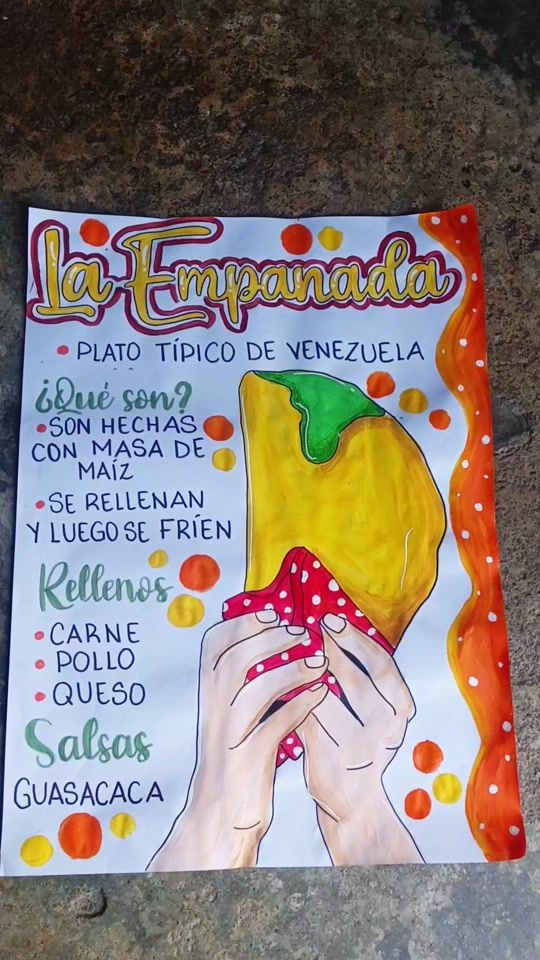 La Empanada
• PLATO TÍPICO DE VENEZUELA
¿Qué son?
• SON HECHAS
CON MASA DE
MAÍZ
• SE RELLENAN
Y LUEGO SE FRÍEN
Rellenos
• CARNE
• POLLO
• QUESO
Salsas
GUASACACA